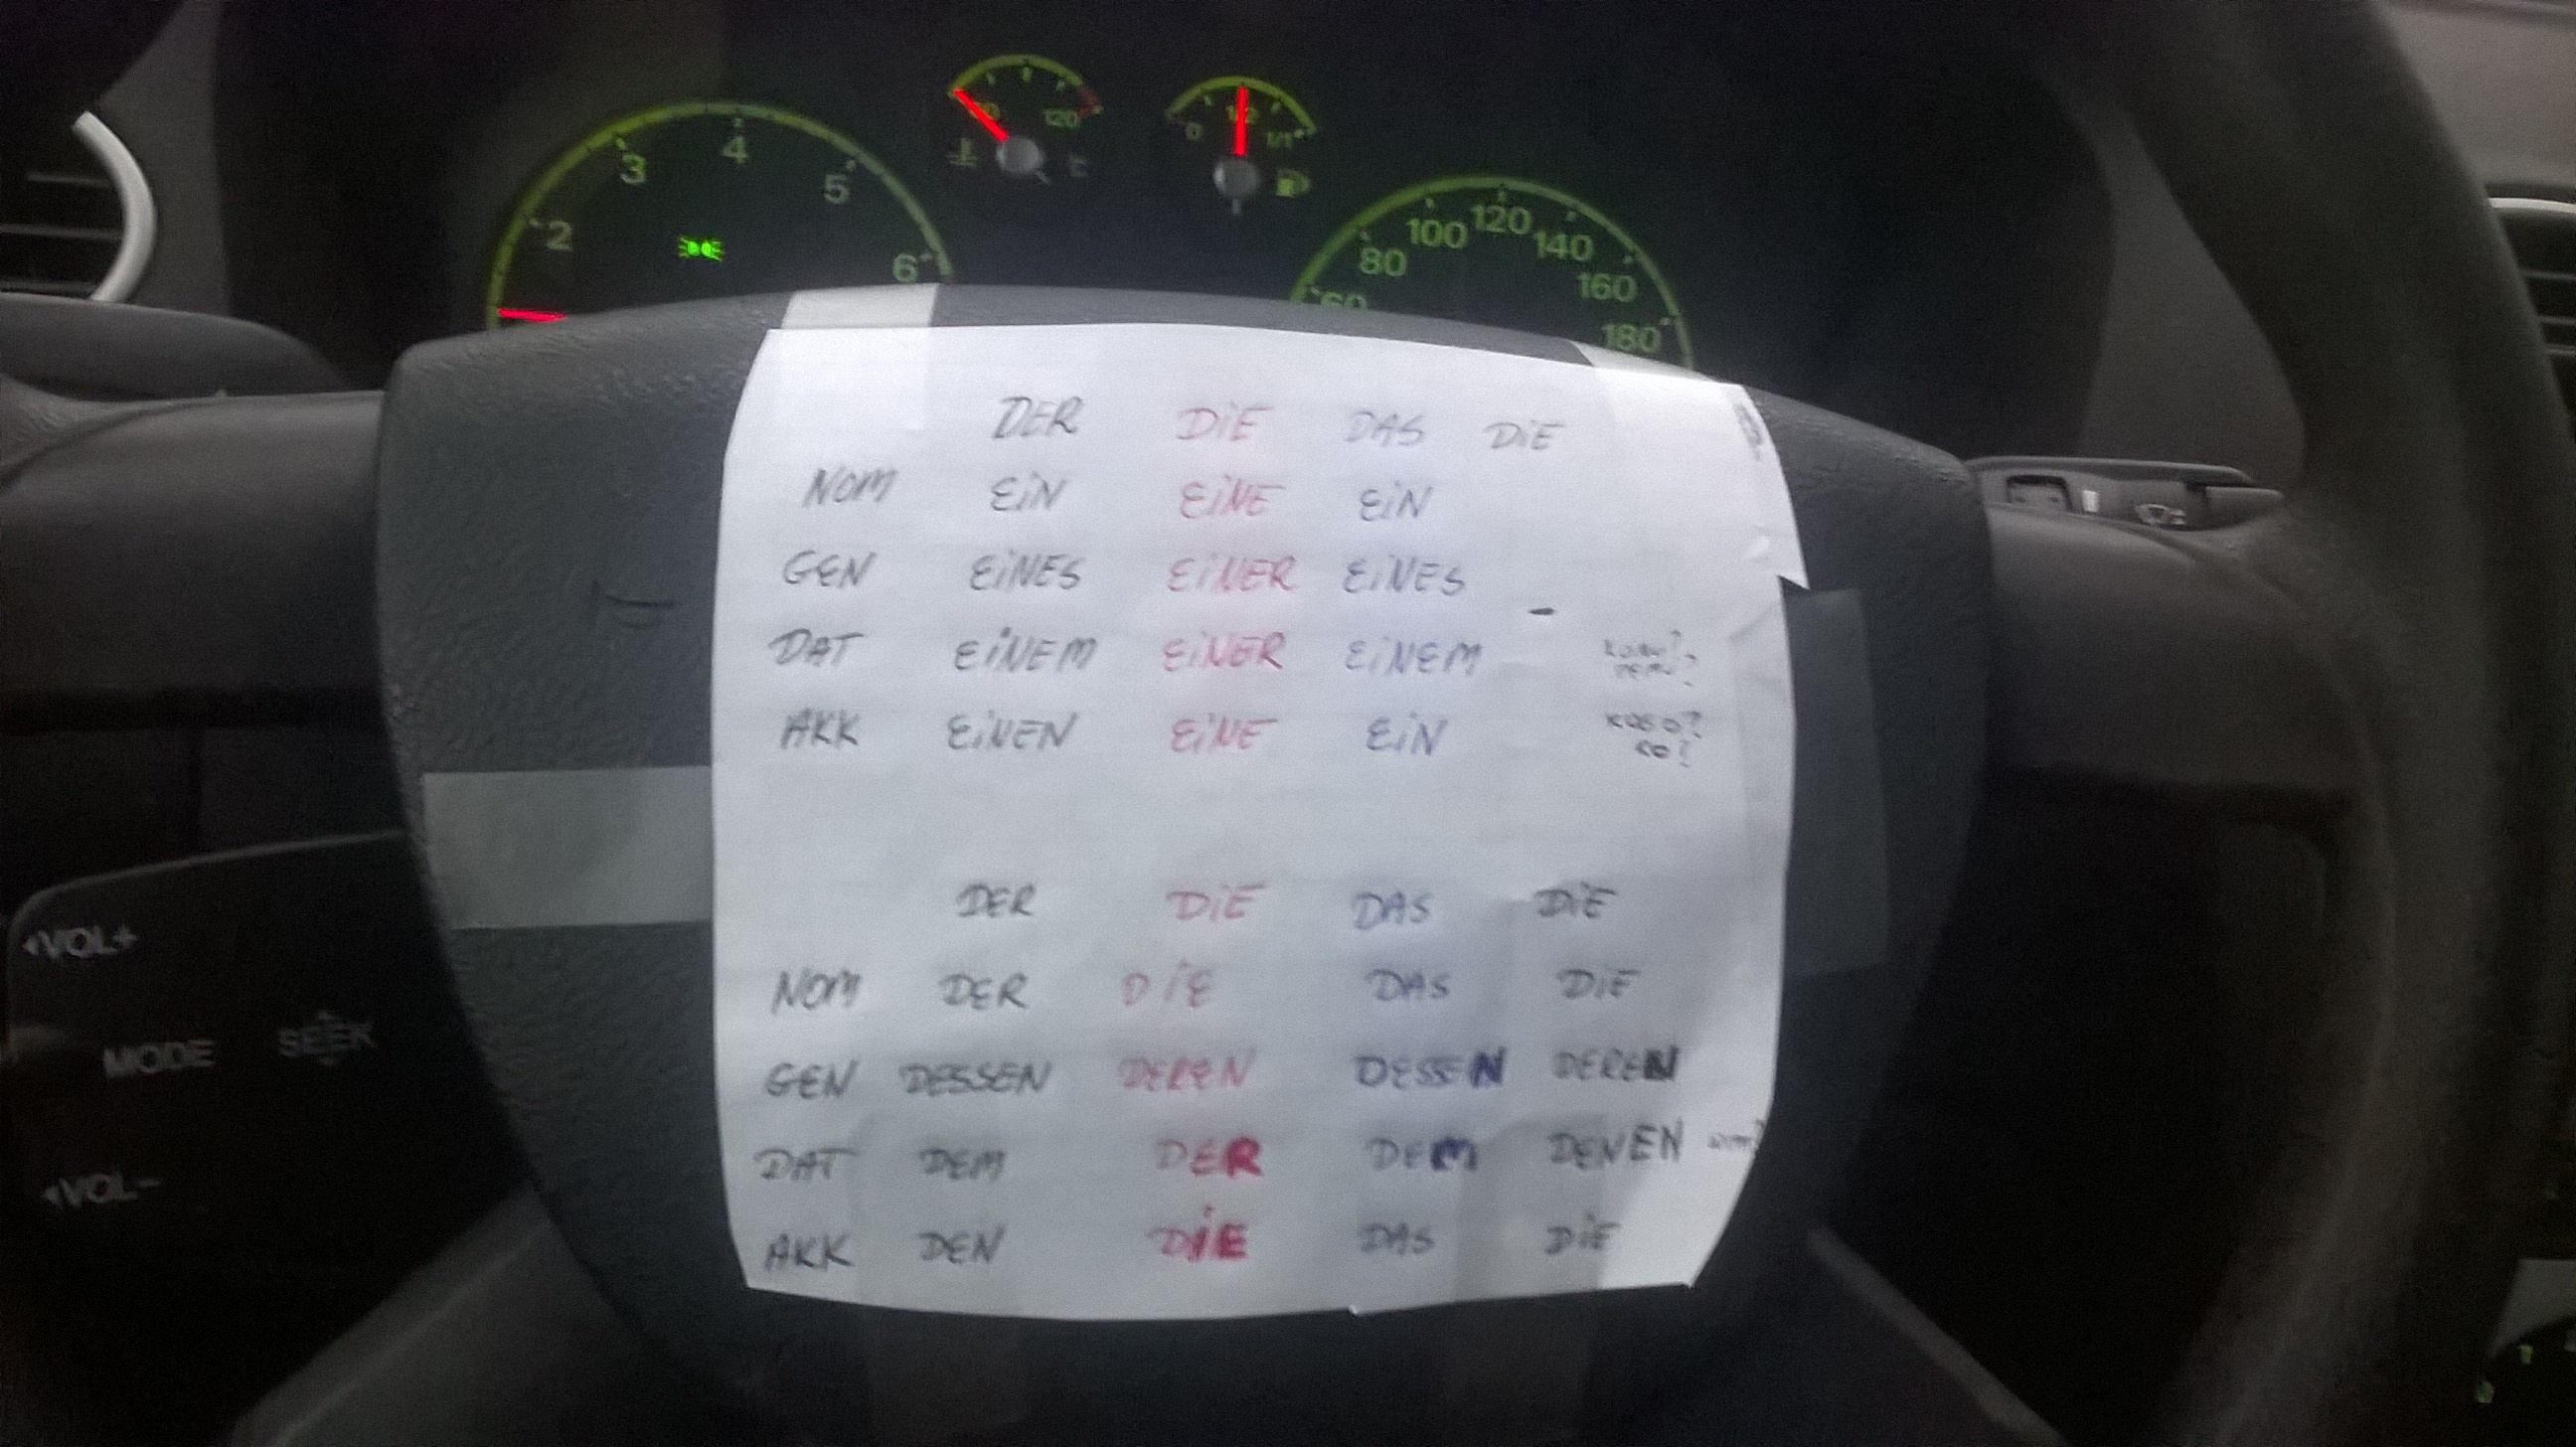 120
0 1/2 1/1
2 3 4 5 6
60 80 100 120 140 160 180
DER DiE DAS DiE
NOM EiN EiNE EiN
GEN EiNES EiNER EiNES -
DAT EiNEM EiNER EiNEM KOMU?
CZEMU?
AKK EiNEN EiNE EiN KOGO?
CO?
DER DiE DAS DiE
NOM DER DiE DAS DiE
GEN DESSEN DEREN DESSEN DEREN
DAT DEM DER DEM DENEN
AKK DEN DiE DAS DiE
VOL+
MODE SEEK
VOL-